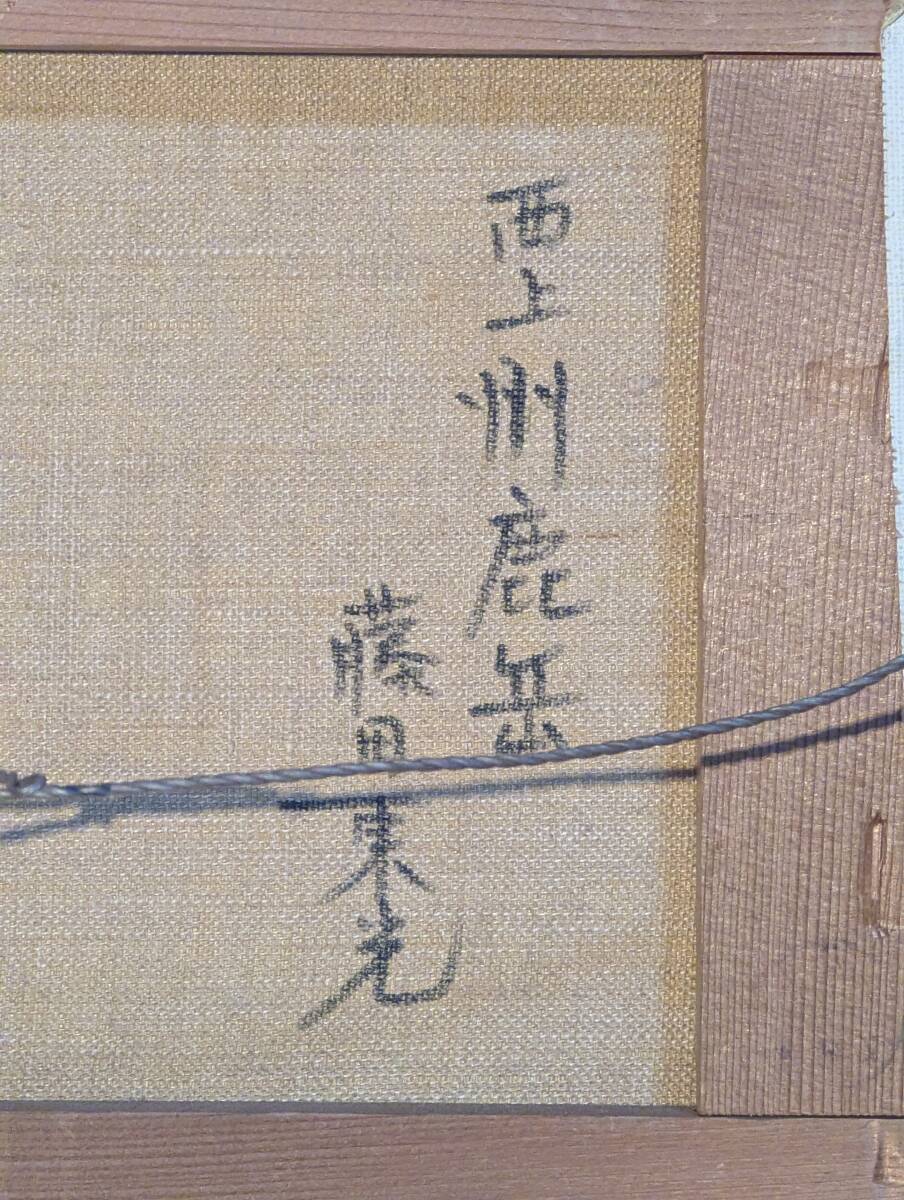 西上州鹿岳
藤田東光